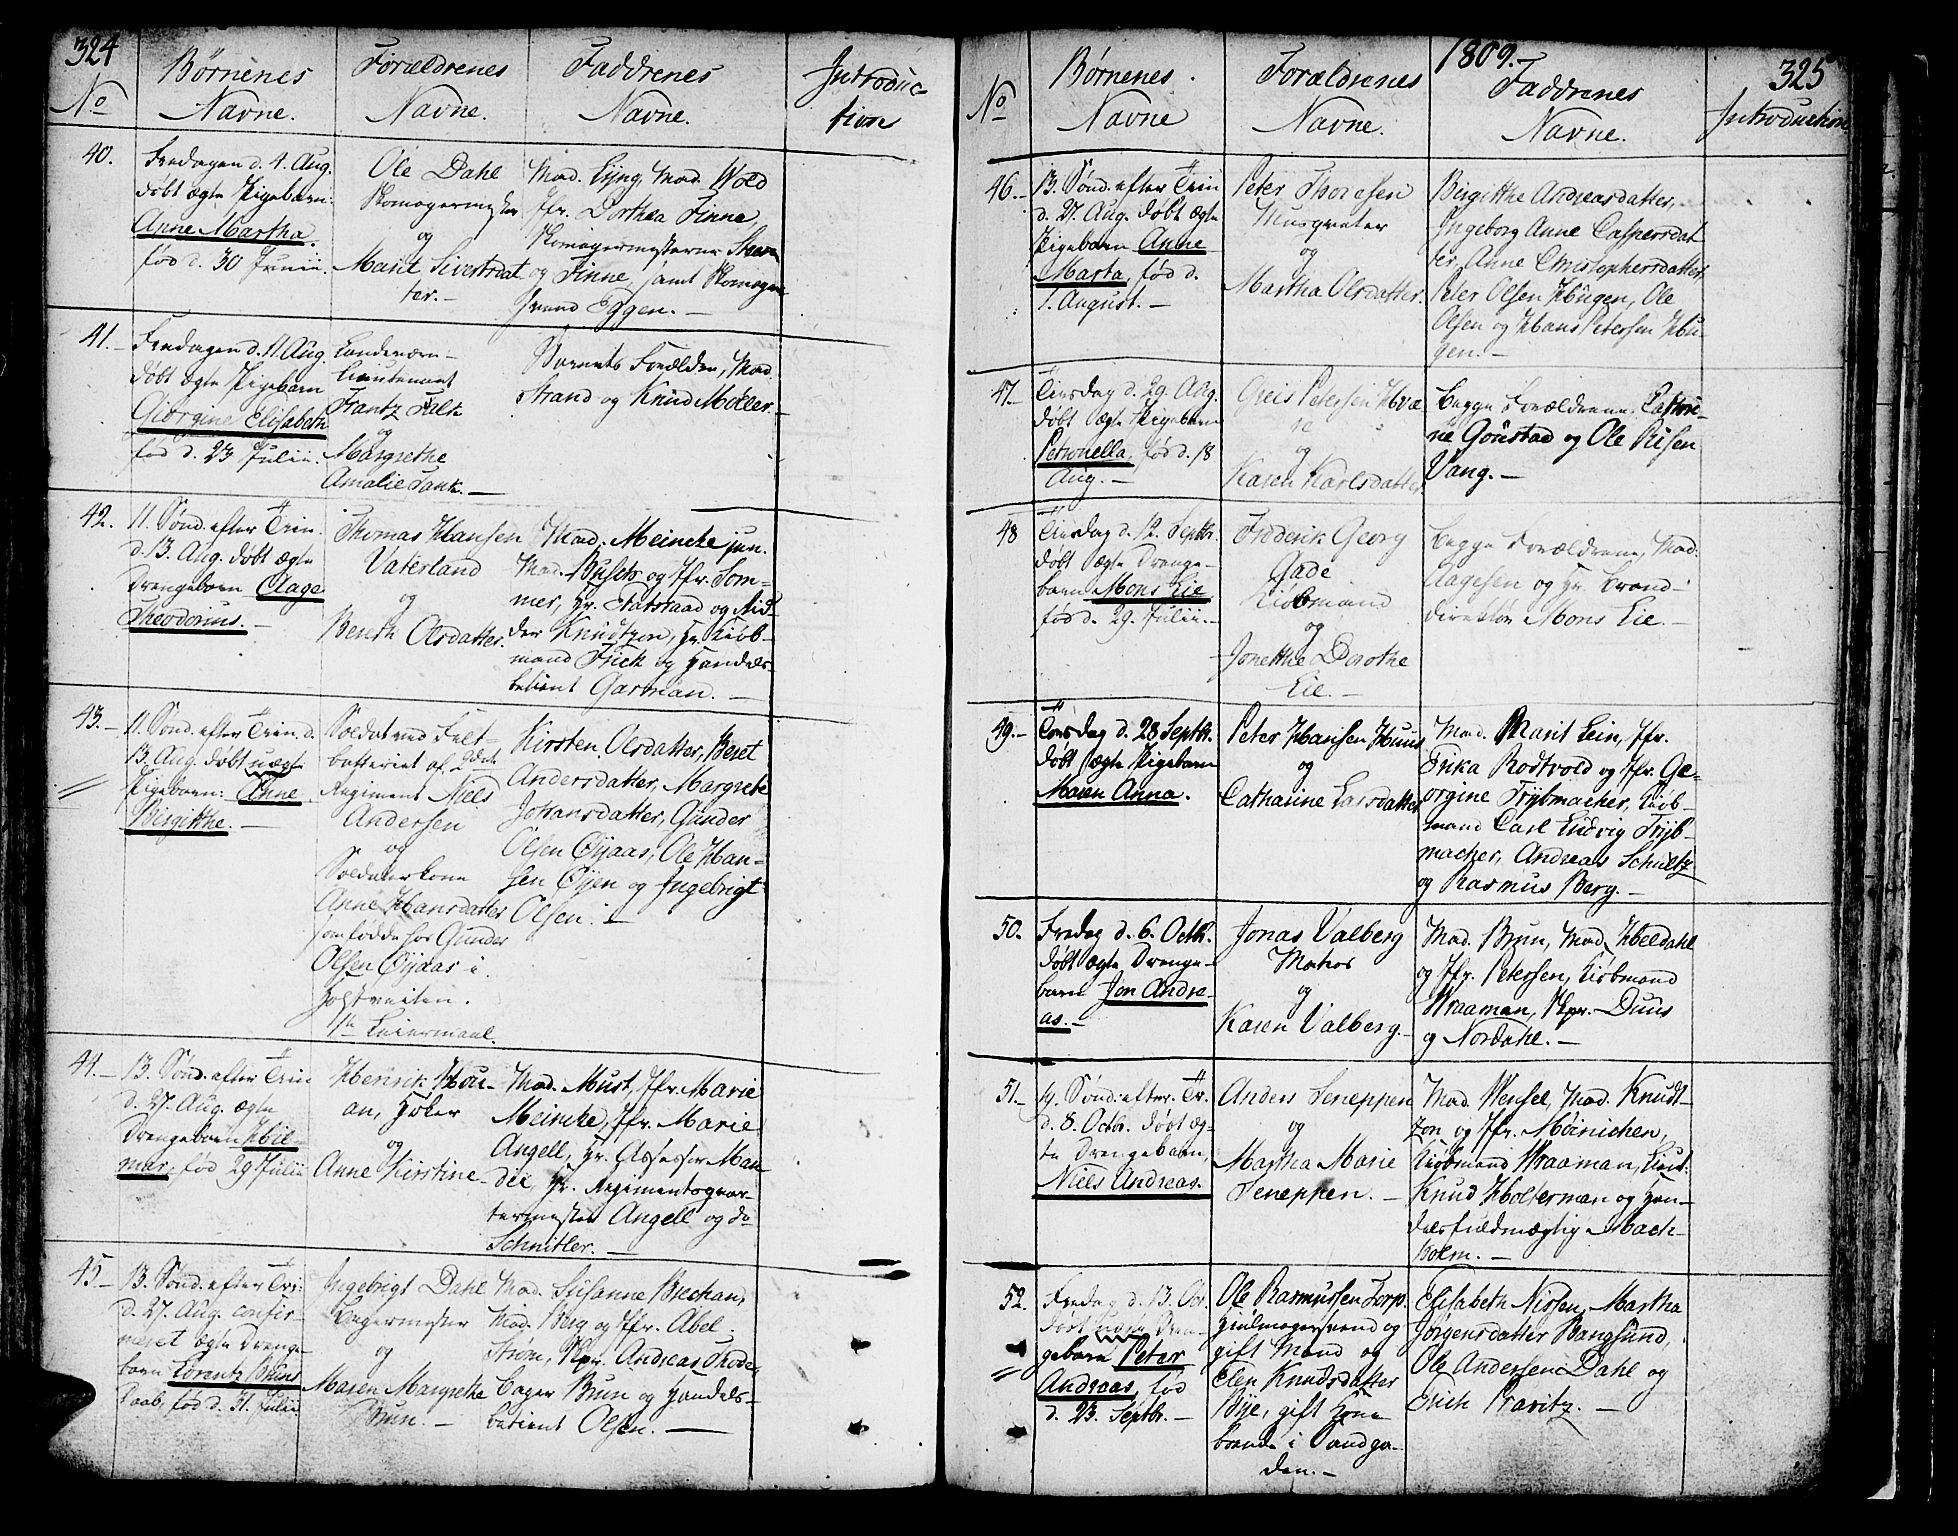 324
No
Børnenes
Navne.
Forældrenes
Navne.
Faddrenes
Navne.
Introduc-
tion
40.
Fredagen d. 4. Aug.
døbt ægte Pigebarn.
Anne Martha.
fød d. 30 Junii.
Ole Dahl
Skomagermester
og
Marit Sivertsdat
ter.-
Mad. Lyng, Mad. Wold
Jfr. Dorthea Finne
Skomagermesterne
og Finne, samt Skomager
svend Eggen. -
41.-
Fredagen d. 11 Aug.
døbt ægte Pigebarn
Giørgine Elisabeth
fød d. 23 Julii.
Landeværn-
Lieutenant
Frantz Falk
og
Margrethe
Amalie Tank. -
Barnets Forældre, Mad.
Strand og Knud Møller. -
42.
11. Sønd. efter Trin.
d. 13. Aug. døbt ægte
Drengebarn Aage
Theodorius. -
Thomas Hansen
Vaterland
og
Berith Olsdatter.
Mad. Meincke jun.
Mad. Busch og Jfr. Som-
mer, Hr. Etatsraad og Rid-
der Knudtzon, Hr. Kiøb-
mand Frick og Handels-
betient Garman. -
43.-
11. Sønd. efter Trin. d.
13. Aug. døbt uægte
Pigebarn: Anne
Birgitthe. -
Soldat ved Felt-
batteriet af 2det
Regiment Niels
Andersen
og
Soldaterkone
Anne Hansdatter
som fødde hos Gunder
Olsen Øijaas i
Hospveiten.
1te Leiermaal.
Kirsten Olsdatter, Beret
Andersdatter, Margrete
Johansdatter, Gunder
Olsen Øijaas, Ole Han-
sen Øijen og Ingebrigt
Olsen. -
44.-
13. Sønd. efter Trin
d. 27. Aug. ægte
Drengebarn Hil-
mar, fød 29 Julii
Henrik Hou-
an, Høker
og
Anne Kirstine -
Mad. Must, Jfr. Marie
Meincke, Jfr. Marie
Angell, Hr. Assessor Man-
dei, Hr. Regimentsqvar-
termester Angell og do
Schnitler. -
45-
13. Sønd. efter Tri.
d. 27. Aug. confir-
meret ægte Drenge-
barn Lorentz Bruns
Raab, fød d. 31. Julii
Ingebrigt Dahl
Bagermester
og
Maren Margrethe
Brun. -
Mad. Susanne Brechan,
Mad. Berg og Jfr. Abel
Strøm, Skpr. Andreas Thode,
Bager Brun og Handels-
betient Olsen. -
1809.
325
No
Børnenes
Navne
Forældrenes
Navne.
Faddrenes
Navne.
Introduction
46.-
13. Sønd. efter Trin
d. 27. Aug. døbt ægte
Pigebarn Anne
Marta, fød d.
1. August. -
Peter Thoresen
Musqueter
og
Martha Olsdatter.
Birgitthe Andreasdatter,
Ingeborg Anne Caspersdat
ter, Anne Christophersdatter
Peter Olsen Haugen, Ole
Olsen og Hans Petersen Hau-
gen. -
47.-
Tirsdag d. 29. Aug.
døbt ægte Pigebarn
Petronella, fød d. 18
Aug. -
Greis Petersen
og
Karen Karlsdatter
Begge Forældrene,
Gorestad og Ole Olsen
Vang. -
48
Tirsdag d. 12. Septbr.
døbt ægte Drenge-
barn Mons Lie
fød d. 29. Julii. -
Frederik Georg
Gade
Kiøbmand
og
Jonetthe Dorothe
Lie. -
Begge Forældrene, Mad.
Aagesen og Hr. Brand-
direktør Mons Lie. -
49.-
Torsdag d. 28 Septbr.
døbt ægte Pigebarn
Maren Anna.
Peter Hansen Huus
og
Catharine Larsdatter
Mad. Marit Lein, Jfr.
Erika Rodtvold og Jfr. Ge-
orgine Trybmacher, Kiøb-
mand Carl Ludvig Tryb-
macher, Andreas Schultz
og Rasmus Berg. -
50.
Fredag d. 6. Octb.
døbt ægte Drenge-
barn Jon Andre-
as. -
Jonas Valberg
Matros
og
Karen Valberg. -
Mad. Brun, Mad. Heldahl
og Jfr. Petersen, Kiøbmand
Wraaman, Skpr. Duus
og Nordahl. -
51.-
19. Sønd. efter Tr.
d. 8. Octbr. døbt æg-
te Drengebarn,
Niels Andreas.
Anders Seneppen
og
Martha Marie
Seneppen. -
Mad. Wensel, Mad. Knudt-
zon og Jfr. Møinichen,
Kiøbmand Wraaman, Lieut.
Knud Holterman og Han-
delsfuldmægtig Mach-
holm. -
52.
Fredag d. 13. Oct.
døbt uægte Dren-
gebarn Peter
Andreas, fød
d. 23. Septbr. -
Ole Rasmussen Torp.
Hiulmagersvend og
gift Mand og
Elen Knudsdatter
Bye, gift Kone
boende i Sandga-
den. -
Elisabeth Nissen, Martha
Jørgensdatter Bangsund,
Ole Andersen Dahl og
Erich Pravitz. -